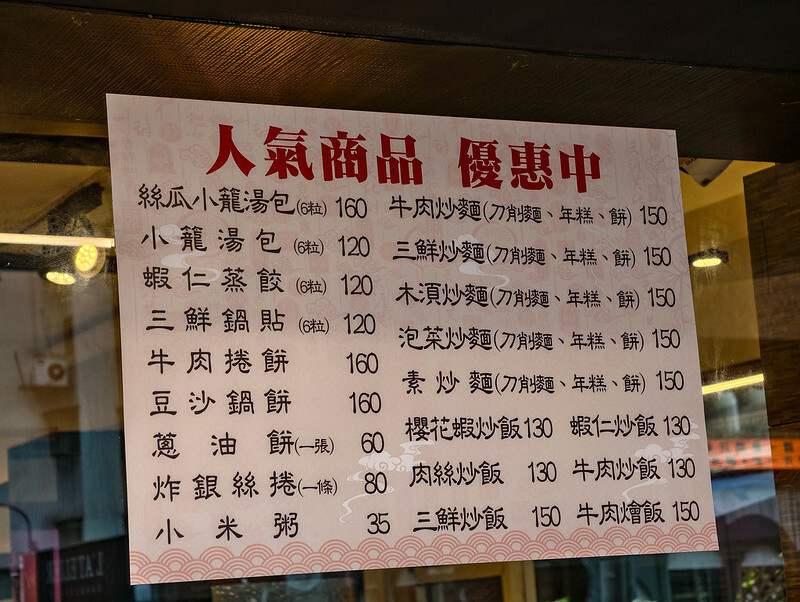 人氣商品 優惠中
絲瓜小籠湯包(6粒) 160
小籠湯包(6粒) 120
蝦仁蒸餃(6粒) 120
三鮮鍋貼(6粒) 120
牛肉捲餅 160
豆沙鍋餅 160
蔥油餅(一張) 60
炸銀絲捲(一條) 80
小米粥 35
牛肉炒麵(刀削麵、年糕、餅) 150
三鮮炒麵(刀削麵、年糕、餅) 150
木須炒麵(刀削麵、年糕、餅) 150
泡菜炒麵(刀削麵、年糕、餅) 150
素炒麵(刀削麵、年糕、餅) 150
櫻花蝦炒飯130 蝦仁炒飯 130
肉絲炒飯 130 牛肉炒飯 130
三鮮炒飯 150 牛肉燴飯 150